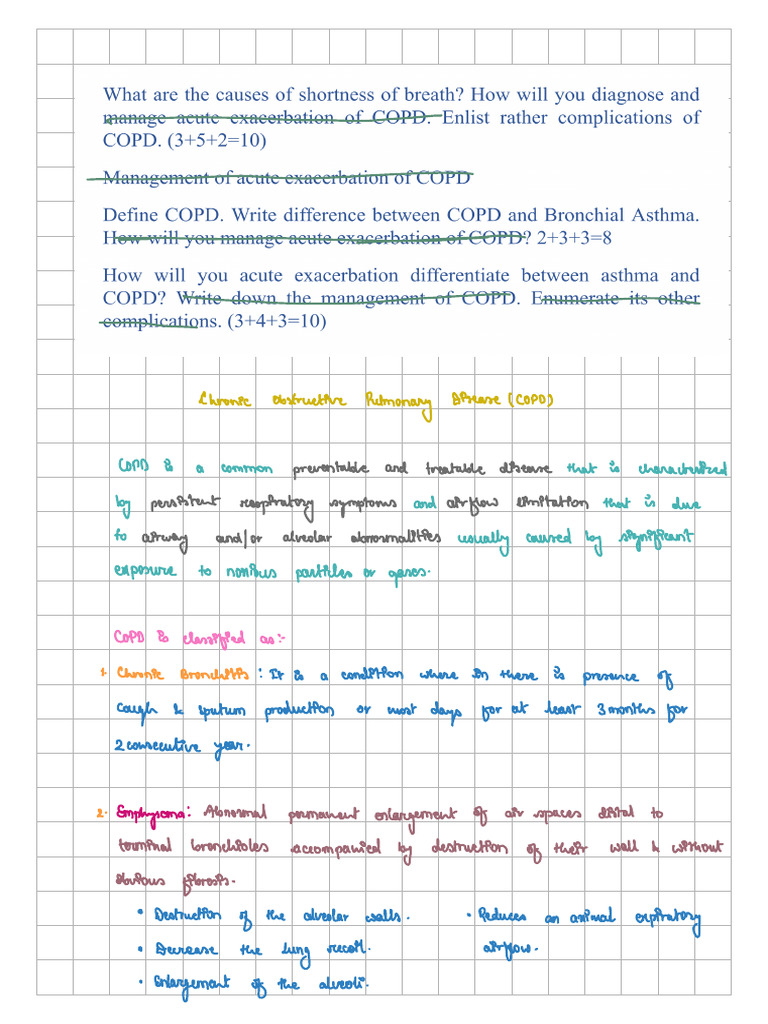 What are the causes of shortness of breath? How will you diagnose and
manage acute exacerbation of COPD. Enlist rather complications of
COPD. (3+5+2=10)
Management of acute exacerbation of COPD
Define COPD. Write difference between COPD and Bronchial Asthma.
How will you manage acute exacerbation of COPD? 2+3+3=8
How will you acute exacerbation differentiate between asthma and
COPD? Write down the management of COPD. Enumerate its other
complications. (3+4+3=10)
Chronic Obstructive Pulmonary Disease (COPD)
COPD is a common preventable and treatable disease that is characterized
by persistent respiratory symptoms and airflow limitation that is due
to airway and/or alveolar abnormalities usually caused by significant
exposure to noxious particles or gases.
COPD is classified as:-
1. Chronic Bronchitis : It is a condition where in there is presence of
cough & sputum production or most days for at least 3 months for
2 consecutive year.
2. Emphysema: Abnormal permanent enlargement of air spaces distal to
terminal bronchioles accompanied by destruction of their wall & without
obvious fibrosis.
• Destruction of the alveolar walls.
• Decrease the lung recoil.
• Enlargement of the alveoli.
• Reduces an animal expiratory
airflow.